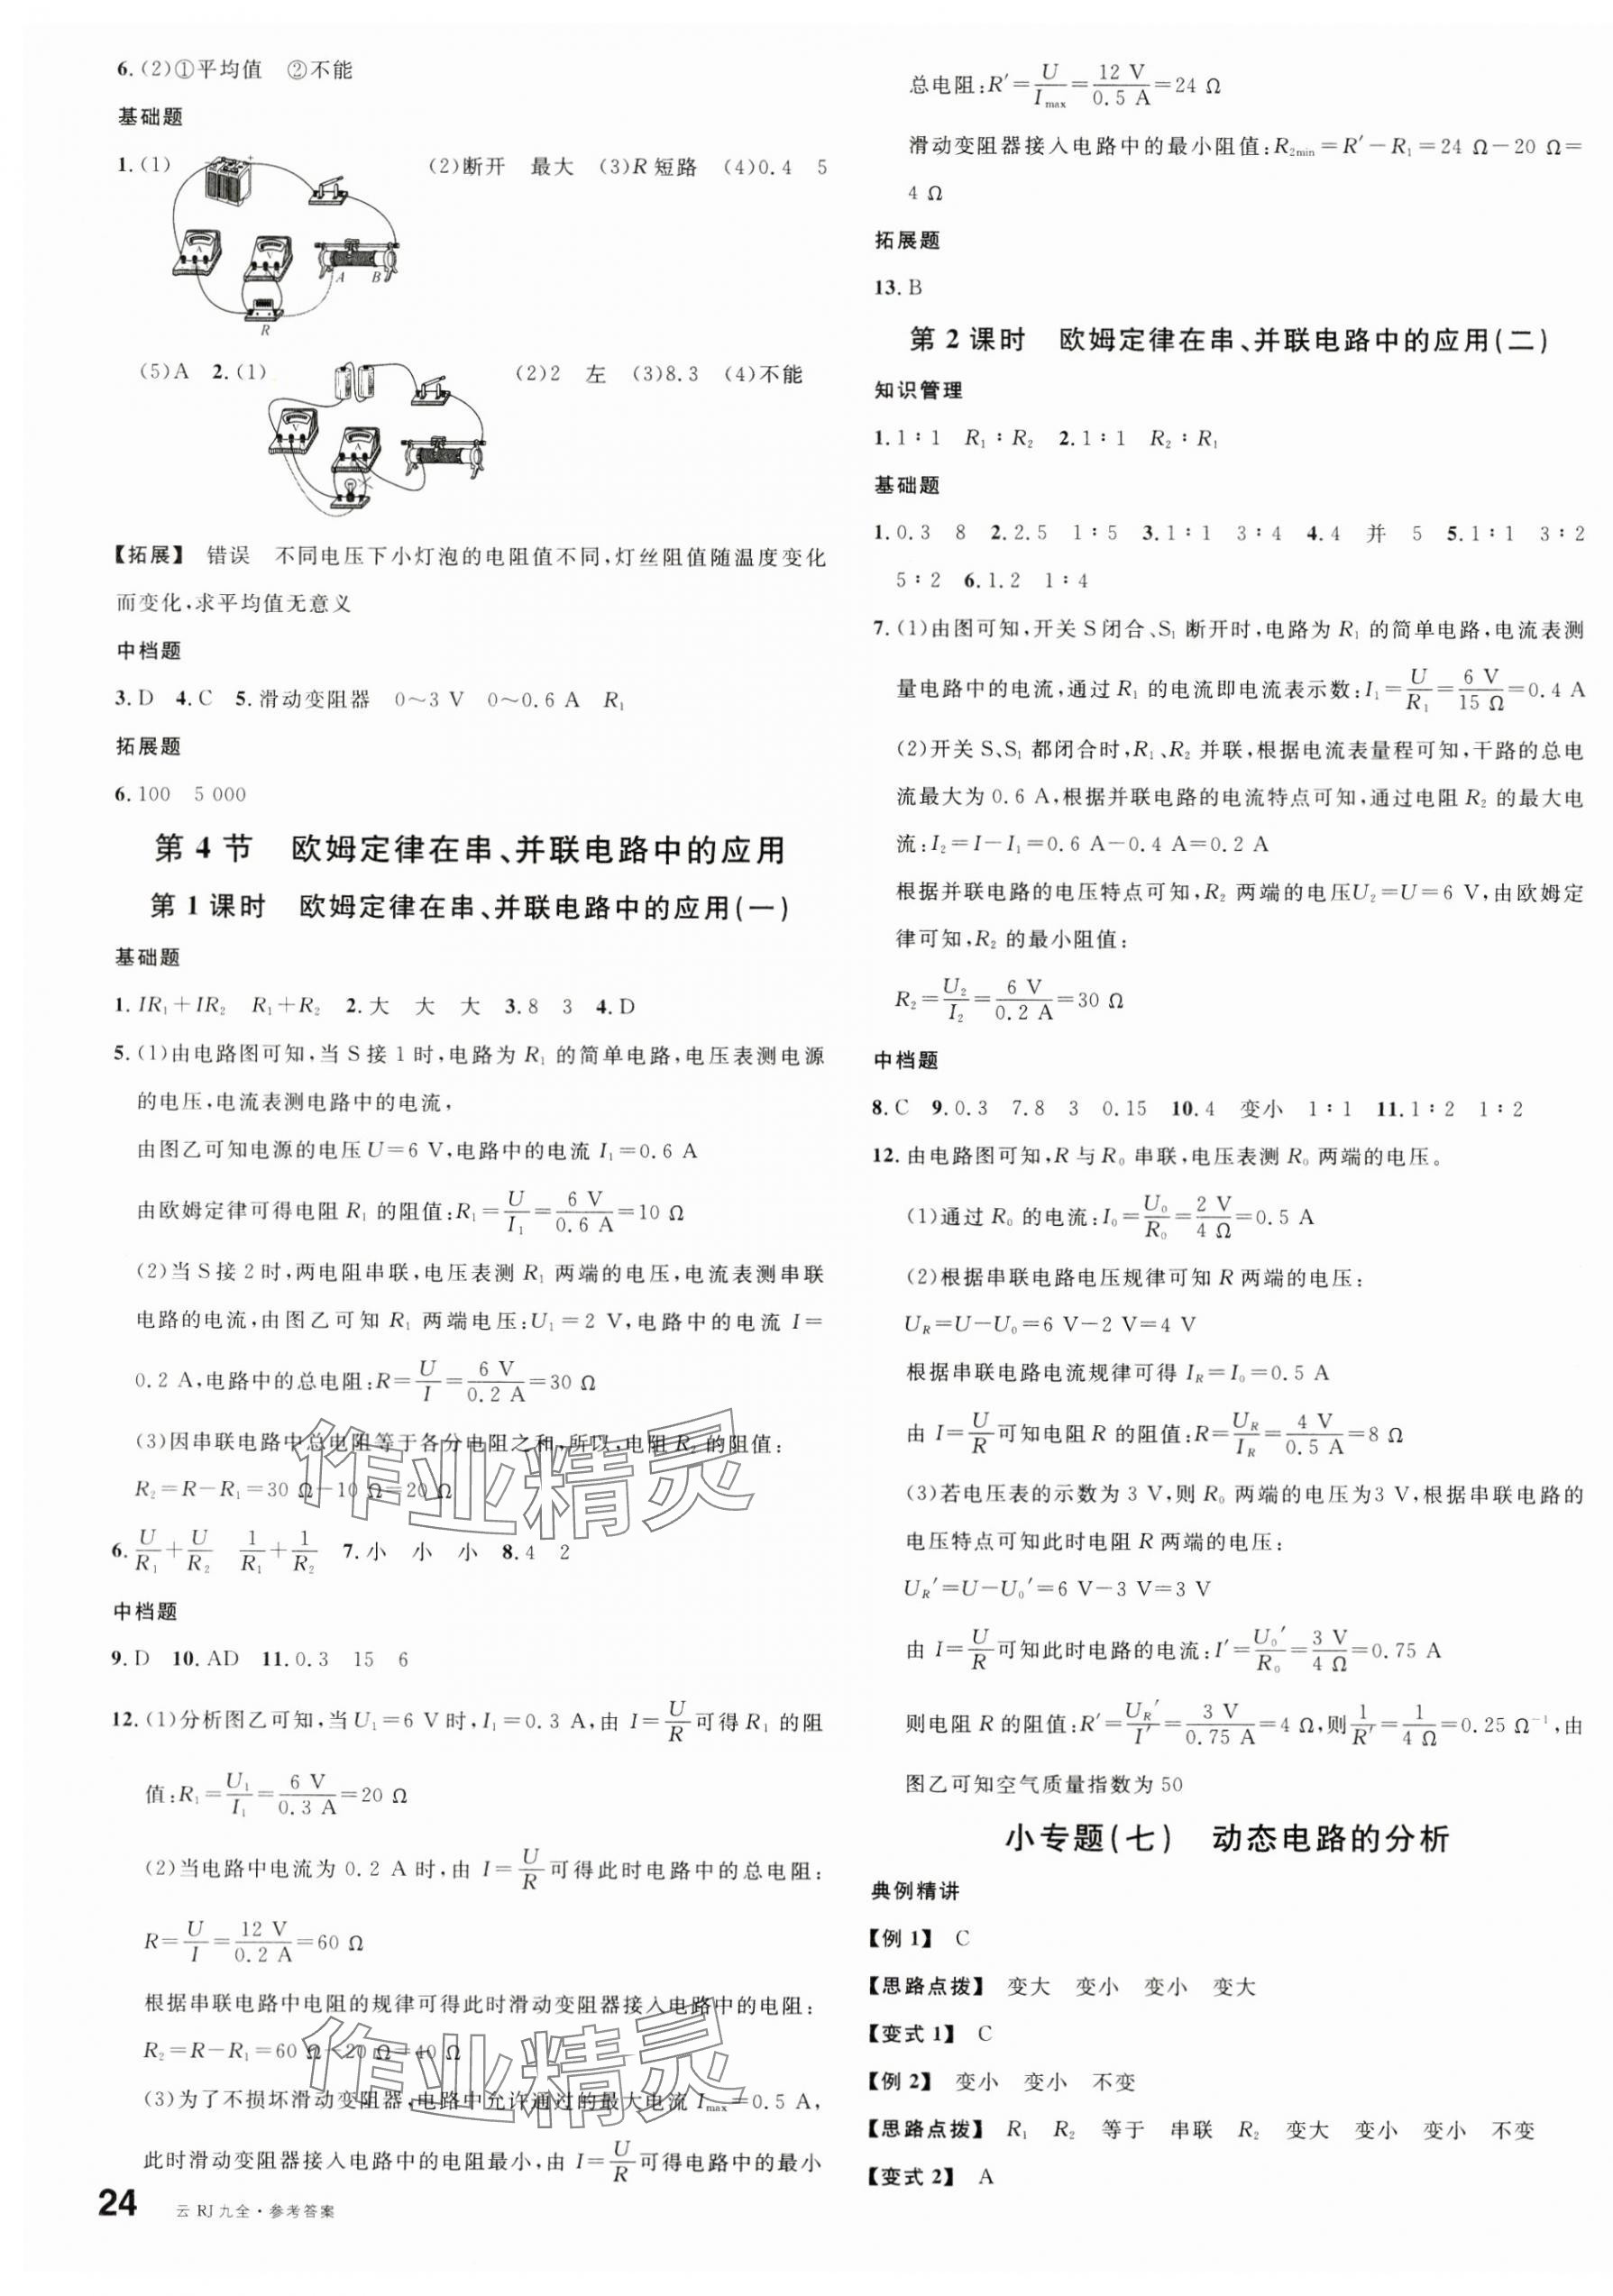 6.(2)①平均值　②不能
基础题
1.(1)　(2)断开　最大　(3)R 短路　(4)0.4　5
A　V　A　B
R
(5)A　2.(1)　(2)2　左　(3)8.3　(4)不能
V　A
【拓展】　错误　不同电压下小灯泡的电阻值不同,灯丝阻值随温度变化
而变化,求平均值无意义
中档题
3.D　4.C　5.滑动变阻器　0～3 V　0～0.6 A　R₁
拓展题
6.100　5 000
第 4 节　欧姆定律在串、并联电路中的应用
第 1 课时　欧姆定律在串、并联电路中的应用(一)
基础题
1.IR₁+IR₂　R₁+R₂　2.大　大　大　3.8　3　4.D
5.(1)由电路图可知,当 S 接 1 时,电路为 R₁ 的简单电路,电压表测电源
的电压,电流表测电路中的电流,
由图乙可知电源的电压 U=6 V,电路中的电流 I₁=0.6 A
由欧姆定律可得电阻 R₁ 的阻值:R₁=U/I₁=6 V/0.6 A=10 Ω
(2)当 S 接 2 时,两电阻串联,电压表测 R₁ 两端的电压,电流表测串联
电路的电流,由图乙可知 R₁ 两端电压:U₁=2 V,电路中的电流 I=
0.2 A,电路中的总电阻:R=U/I=6 V/0.2 A=30 Ω
(3)因串联电路中总电阻等于各分电阻之和,所以,电阻 R₂ 的阻值:
R₂=R−R₁=30 Ω−10 Ω=20 Ω
6.U/R₁+U/R₂　1/R₁+1/R₂　7.小　小　小　8.4　2
中档题
9.D　10.AD　11.0.3　15　6
12.(1)分析图乙可知,当 U₁=6 V 时,I₁=0.3 A,由 I=U/R可得 R₁ 的阻
值:R₁=U₁/I₁=6 V/0.3 A=20 Ω
(2)当电路中电流为 0.2 A 时,由 I=U/R可得此时电路中的总电阻:
R=U/I=12 V/0.2 A=60 Ω
根据串联电路中电阻的规律可得此时滑动变阻器接入电路中的电阻:
R₂=R−R₁=60 Ω−20 Ω=40 Ω
(3)为了不损坏滑动变阻器,电路中允许通过的最大电流 Imax=0.5 A,
此时滑动变阻器接入电路中的电阻最小,由 I=U/R可得电路中的最小
24　云 RJ 九全·参考答案
总电阻:R′=U/Imax=12 V/0.5 A=24 Ω
滑动变阻器接入电路中的最小阻值:R2min=R′−R₁=24 Ω−20 Ω=
4 Ω
拓展题
13.B
第 2 课时　欧姆定律在串、并联电路中的应用(二)
知识管理
1.1∶1　R₁∶R₂　2.1∶1　R₂∶R₁
基础题
1.0.3　8　2.2.5　1∶5　3.1∶1　3∶4　4.4　并　5　5.1∶1　3∶2
5∶2　6.1.2　1∶4
7.(1)由图可知,开关 S 闭合、S₁ 断开时,电路为 R₁ 的简单电路,电流表测
量电路中的电流,通过 R₁ 的电流即电流表示数:I₁=U/R₁=6 V/15 Ω=0.4 A
(2)开关 S、S₁ 都闭合时,R₁、R₂ 并联,根据电流表量程可知,干路的总电
流最大为 0.6 A,根据并联电路的电流特点可知,通过电阻 R₂ 的最大电
流:I₂=I−I₁=0.6 A−0.4 A=0.2 A
根据并联电路的电压特点可知,R₂ 两端的电压U₂=U=6 V,由欧姆定
律可知,R₂ 的最小阻值:
R₂=U₂/I₂=6 V/0.2 A=30 Ω
中档题
8.C　9.0.3　7.8　3　0.15　10.4　变小　1∶1　11.1∶2　1∶2
12.由电路图可知,R 与 R₀ 串联,电压表测 R₀ 两端的电压。
(1)通过 R₀ 的电流:I₀=U₀/R₀=2 V/4 Ω=0.5 A
(2)根据串联电路电压规律可知 R 两端的电压:
U_R=U−U₀=6 V−2 V=4 V
根据串联电路电流规律可得 I_R=I₀=0.5 A
由 I=U/R可知电阻 R 的阻值:R=U_R/I_R=4 V/0.5 A=8 Ω
(3)若电压表的示数为 3 V,则 R₀ 两端的电压为3 V,根据串联电路的
电压特点可知此时电阻 R 两端的电压:
U_R′=U−U₀′=6 V−3 V=3 V
由 I=U/R可知此时电路的电流:I′=U₀′/R₀=3 V/4 Ω=0.75 A
则电阻 R 的阻值:R′=U_R′/I′=3 V/0.75 A=4 Ω,则1/R′=1/4 Ω=0.25 Ω⁻¹,由
图乙可知空气质量指数为 50
小专题(七)　动态电路的分析
典例精讲
【例 1】　C
【思路点拨】　变大　变小　变小　变大
【变式 1】　C
【例 2】　变小　变小　不变
【思路点拨】　R₁　R₂　等于　串联　R₂　变大　变小　变小　不变
【变式 2】　A
作业精灵
作业精灵